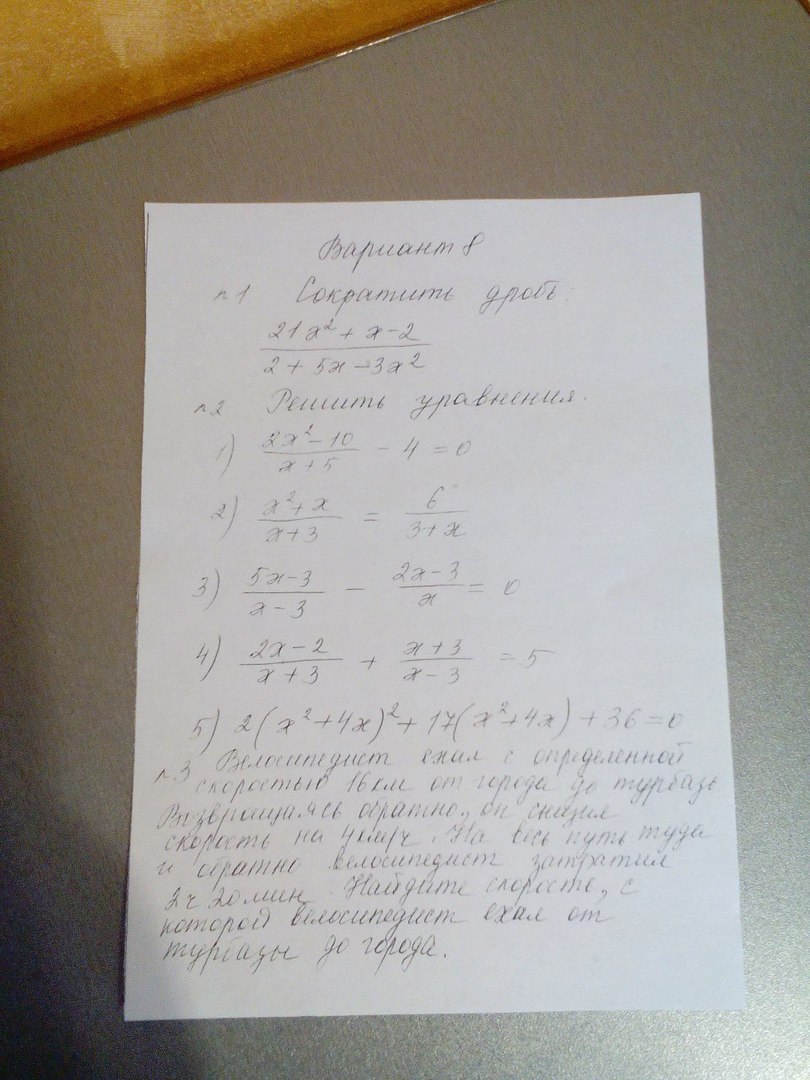 Вариант 8
n1 Сократить дробь:
21x² + x - 2
2 + 5x - 3x²
n2 Решить уравнения.
1) (2x² - 10)/(x + 5) - 4 = 0
2) (x² + x)/(x + 3) = 6/(3 + x)
3) (5x - 3)/(x - 3) - (2x - 3)/x = 0
4) (2x - 2)/(x + 3) + (x + 3)/(x - 3) = 5
5) 2(x² + 4x)² + 17(x² + 4x) + 36 = 0
n3 Велосипедист ехал с определенной
скоростью 16 км от города до турбазы
Возвращаясь обратно, он снизил
скорость на 4 км/ч. На весь путь туда
и обратно велосипедист затратил
2 ч 20 мин. Найдите скорость, с
которой велосипедист ехал от
турбазы до города.